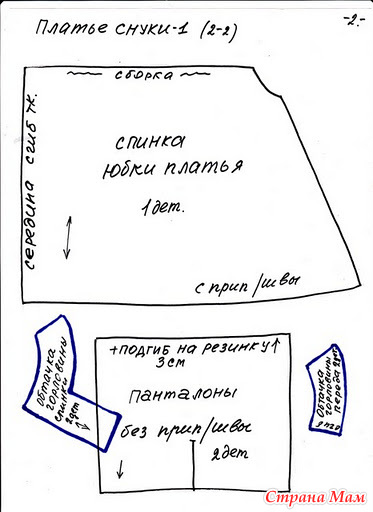 Платье снуки-1 (2-2)
-2.-
сборка
середина сгиб тк.
спинка
юбки платья
1 дет.
с прип/швы
обтачка
горловины
спинки
2 дет
+подгиб на резинку
3 см
панталоны
без прип/швы
2 дет
Обтачка
горловины
переда
Страна Мам